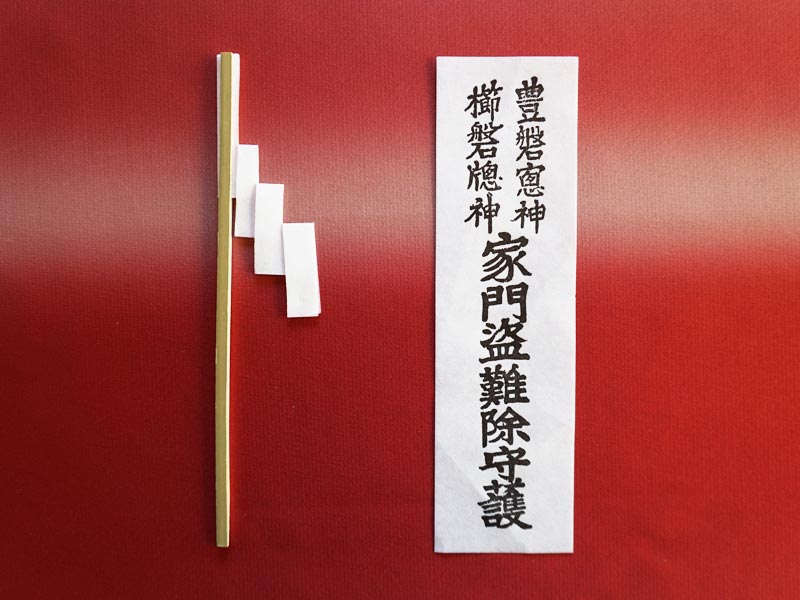 豊磐窻神
櫛磐牕神
家門盗難除守護